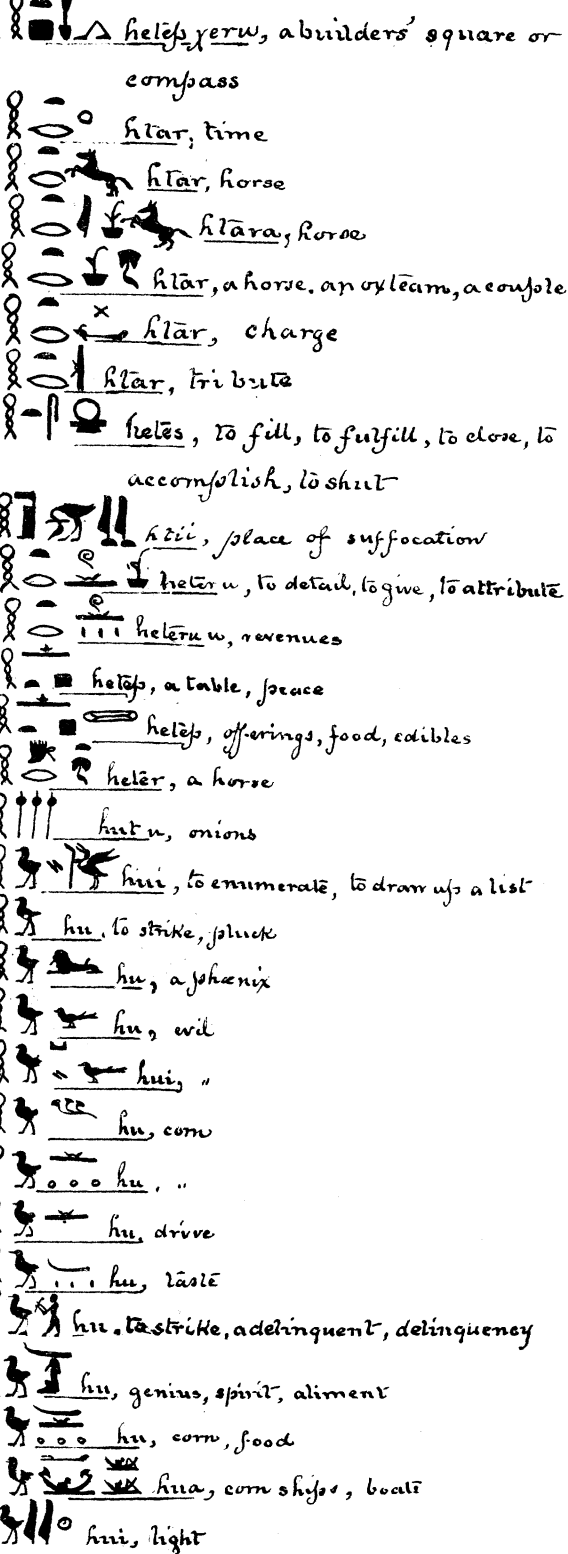 hetep χeru, a builders' square or
compass
htar, time
htar, horse
htāra, horse
htār, a horse. an ox team, a couple
htār, charge
htār, tribute
hetes, to fill, to fulfill, to close, to
accomplish, to shut
htii, place of suffocation
heter u, to detail, to give, to attribute
heteru u, revenues
hetep, a table, peace
hetep, offerings, food, edibles
heter, a horse
hut u, onions
hui, to enumerate, to draw up a list
hu, to strike, pluck
hu, a phœnix
hu, evil
hui, "
hu, corn
hu, "
hu, drive
hu, taste
hu. to strike, a delinquent, delinquency
hu, genius, spirit, aliment
hu, corn, food
hua, corn ships, boats
hui, light